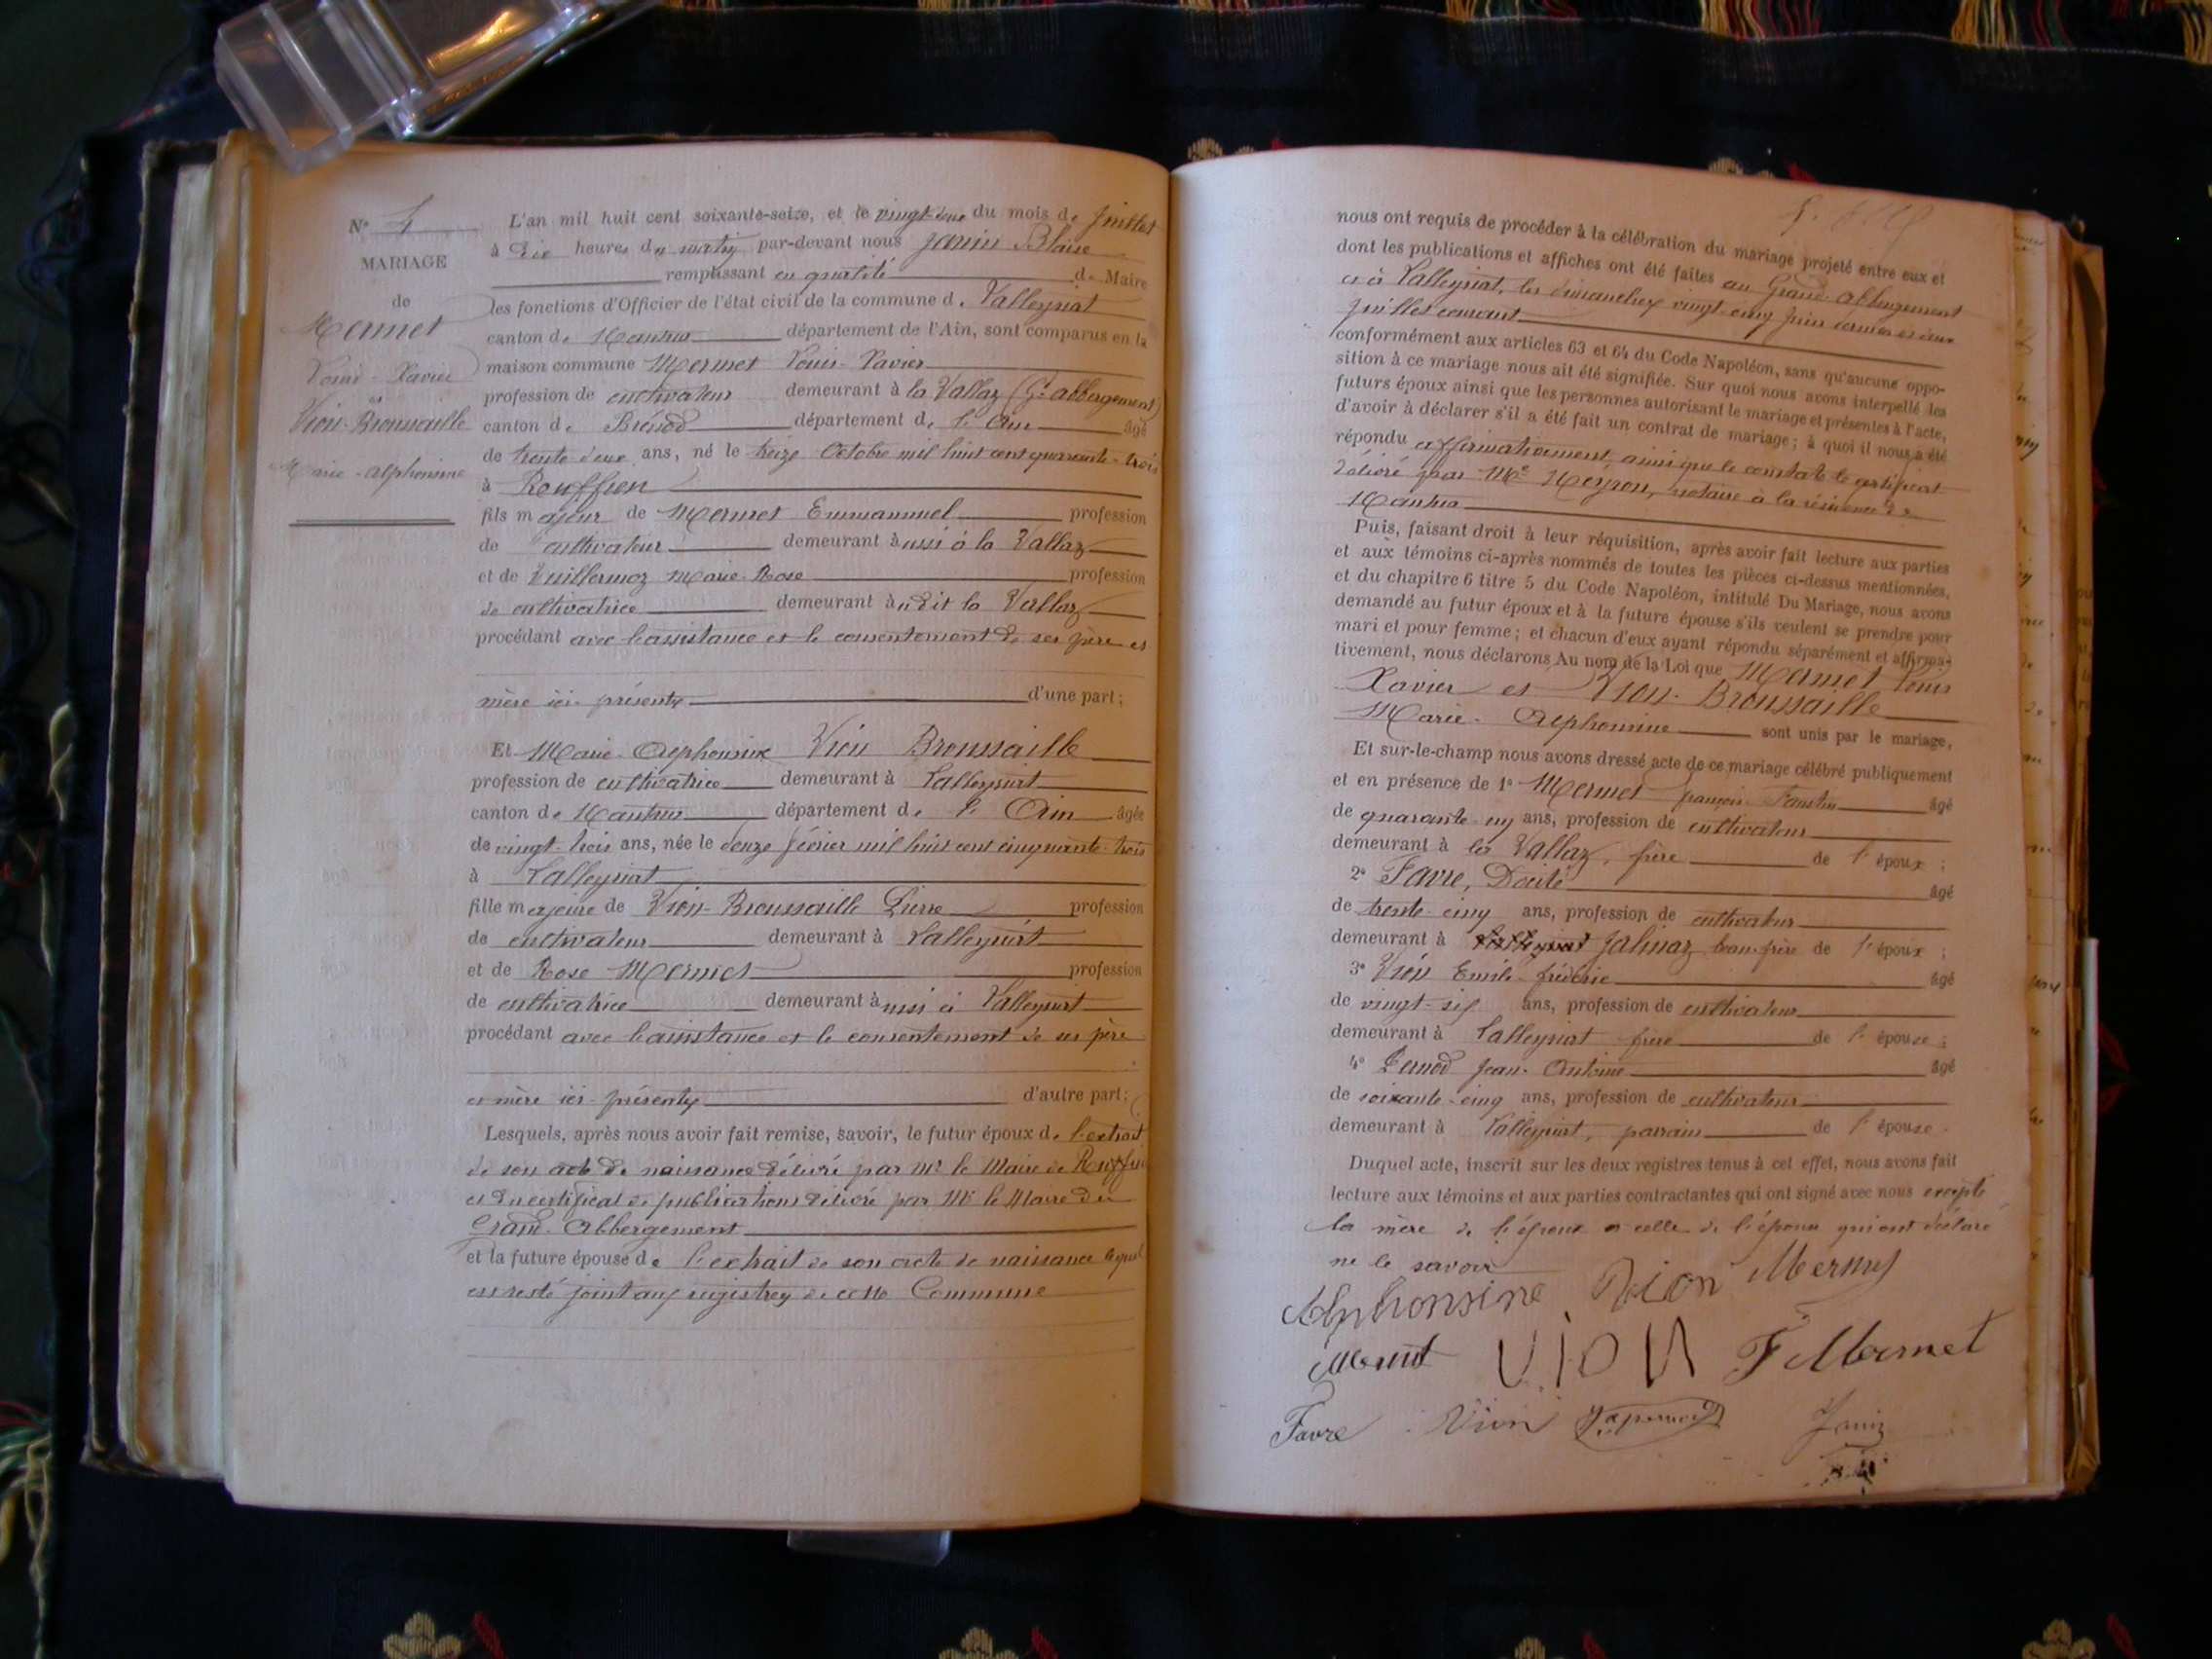 N° 4
MARIAGE
de
Mermet
Louis-Xavier
et
Vion-Broussaille
Marie-alphonsine
L'an mil huit cent soixante-seize, et le vingt du mois de Juillet
à dix heures du matin par-devant nous Janin Blaise
remplissant en qualité de Maire
les fonctions d'Officier de l'état civil de la commune de Lalleyriat
canton de Nantua département de l'Ain, sont comparus en la
maison commune Mermet Louis-Xavier
profession de cultivateur demeurant à la Vallaz (Gd abbergement)
canton de Brénod département de l'Ain âgé
de trente deux ans, né le treize Octobre mil huit cent quarante-trois
à Rouffieu
fils majeur de Mermet Emmanuel profession
de cultivateur demeurant aussi à la Vallaz
et de Vuillermoz Marie-Rose profession
de cultivatrice demeurant audit la Vallaz
procédant avec l'assistance et le consentement de ses père et
mère ici-présents d'une part;
Et Marie-Alphonsine Vion Broussaille
profession de cultivatrice demeurant à Lalleyriat
canton de Nantua département de l'Ain âgée
de vingt-trois ans, née le douze février mil huit cent cinquante-trois
à Lalleyriat
fille majeure de Vion-Broussaille Pierre profession
de cultivateur demeurant à Lalleyriat
et de Rose Mermet profession
de cultivatrice demeurant aussi à Lalleyriat
procédant avec l'assistance et le consentement de ses père
et mère ici-présents d'autre part;
Lesquels, après nous avoir fait remise, savoir, le futur époux de l'extrait
de son acte de naissance délivré par Mr le Maire de Ruffieu
et du certificat de publications délivré par Mr le Maire du
Grand-Abbergement
et la future épouse de l'extrait de son acte de naissance lequel
est resté joint aux registres de cette Commune
nous ont requis de procéder à la célébration du mariage projeté entre eux et
dont les publications et affiches ont été faites au Grand-Abbergement
et à Lalleyriat, les dimanches vingt-cinq juin dernier et deux
juillet courant
conformément aux articles 63 et 64 du Code Napoléon, sans qu'aucune oppo-
sition à ce mariage nous ait été signifiée. Sur quoi nous avons interpellé les
futurs époux ainsi que les personnes autorisant le mariage et présentes à l'acte,
d'avoir à déclarer s'il a été fait un contrat de mariage; à quoi il nous a été
répondu affirmativement, ainsi que le constate le certificat
délivré par Me Meyron, notaire à la résidence de
Nantua
Puis, faisant droit à leur réquisition, après avoir fait lecture aux parties
et aux témoins ci-après nommés de toutes les pièces ci-dessus mentionnées,
et du chapitre 6 titre 5 du Code Napoléon, intitulé Du Mariage, nous avons
demandé au futur époux et à la future épouse s'ils veulent se prendre pour
mari et pour femme; et chacun d'eux ayant répondu séparément et affirma-
tivement, nous déclarons Au nom de la Loi que Mermet Louis
Xavier et Vion-Broussaille
Marie-Alphonsine sont unis par le mariage,
Et sur-le-champ nous avons dressé acte de ce mariage célébré publiquement
et en présence de 1° Mermet françois-Faustin âgé
de quarante-un ans, profession de cultivateur
demeurant à la Vallaz, frère de l'époux;
2° Favre, Docité âgé
de trente-cinq ans, profession de cultivateur
demeurant à Jalinaz, beau-frère de l'époux;
3° Vion Emile-fréderic âgé
de vingt-six ans, profession de cultivateur
demeurant à Lalleyriat frère de l'épouse;
4° Pernod Jean-Antoine âgé
de soixante-cinq ans, profession de cultivateur
demeurant à Lalleyriat, parrain de l'épouse.
Duquel acte, inscrit sur les deux registres tenus à cet effet, nous avons fait
lecture aux témoins et aux parties contractantes qui ont signé avec nous excepté
la mère de l'époux et celle de l'épouse qui ont déclaré
ne le savoir
Alphonsine Vion Mermet
Mermet VION F Mermet
Favre Vion J.a pernod Janin